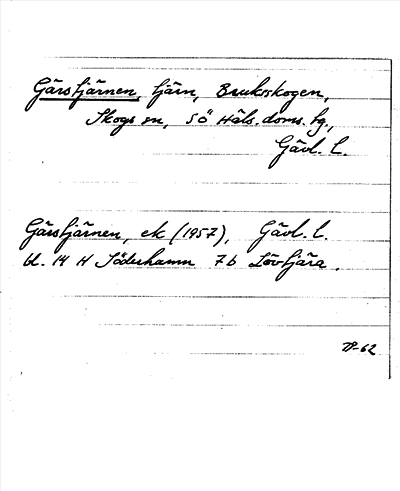 Gårstjärnen, tjärn, Bruksskogen,
Skogs sn, SÖ Häls. doms. tg.,
Gävl. l.
Gårstjärnen, ek (1957), Gävl. l.
bl. 14 H Söderhamn 7b Lövtjära.
-62